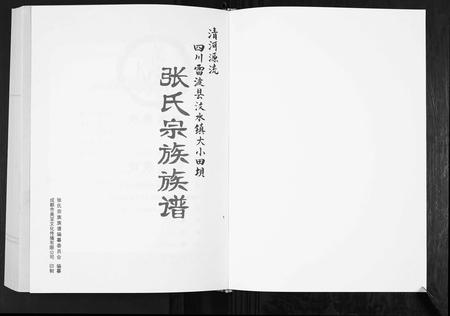 清河源流
四川雷波县汶水镇大小田坝
张氏宗族族谱
张氏宗族族谱编纂委员会 编纂
成都市美笑文化传播有限公司 印制